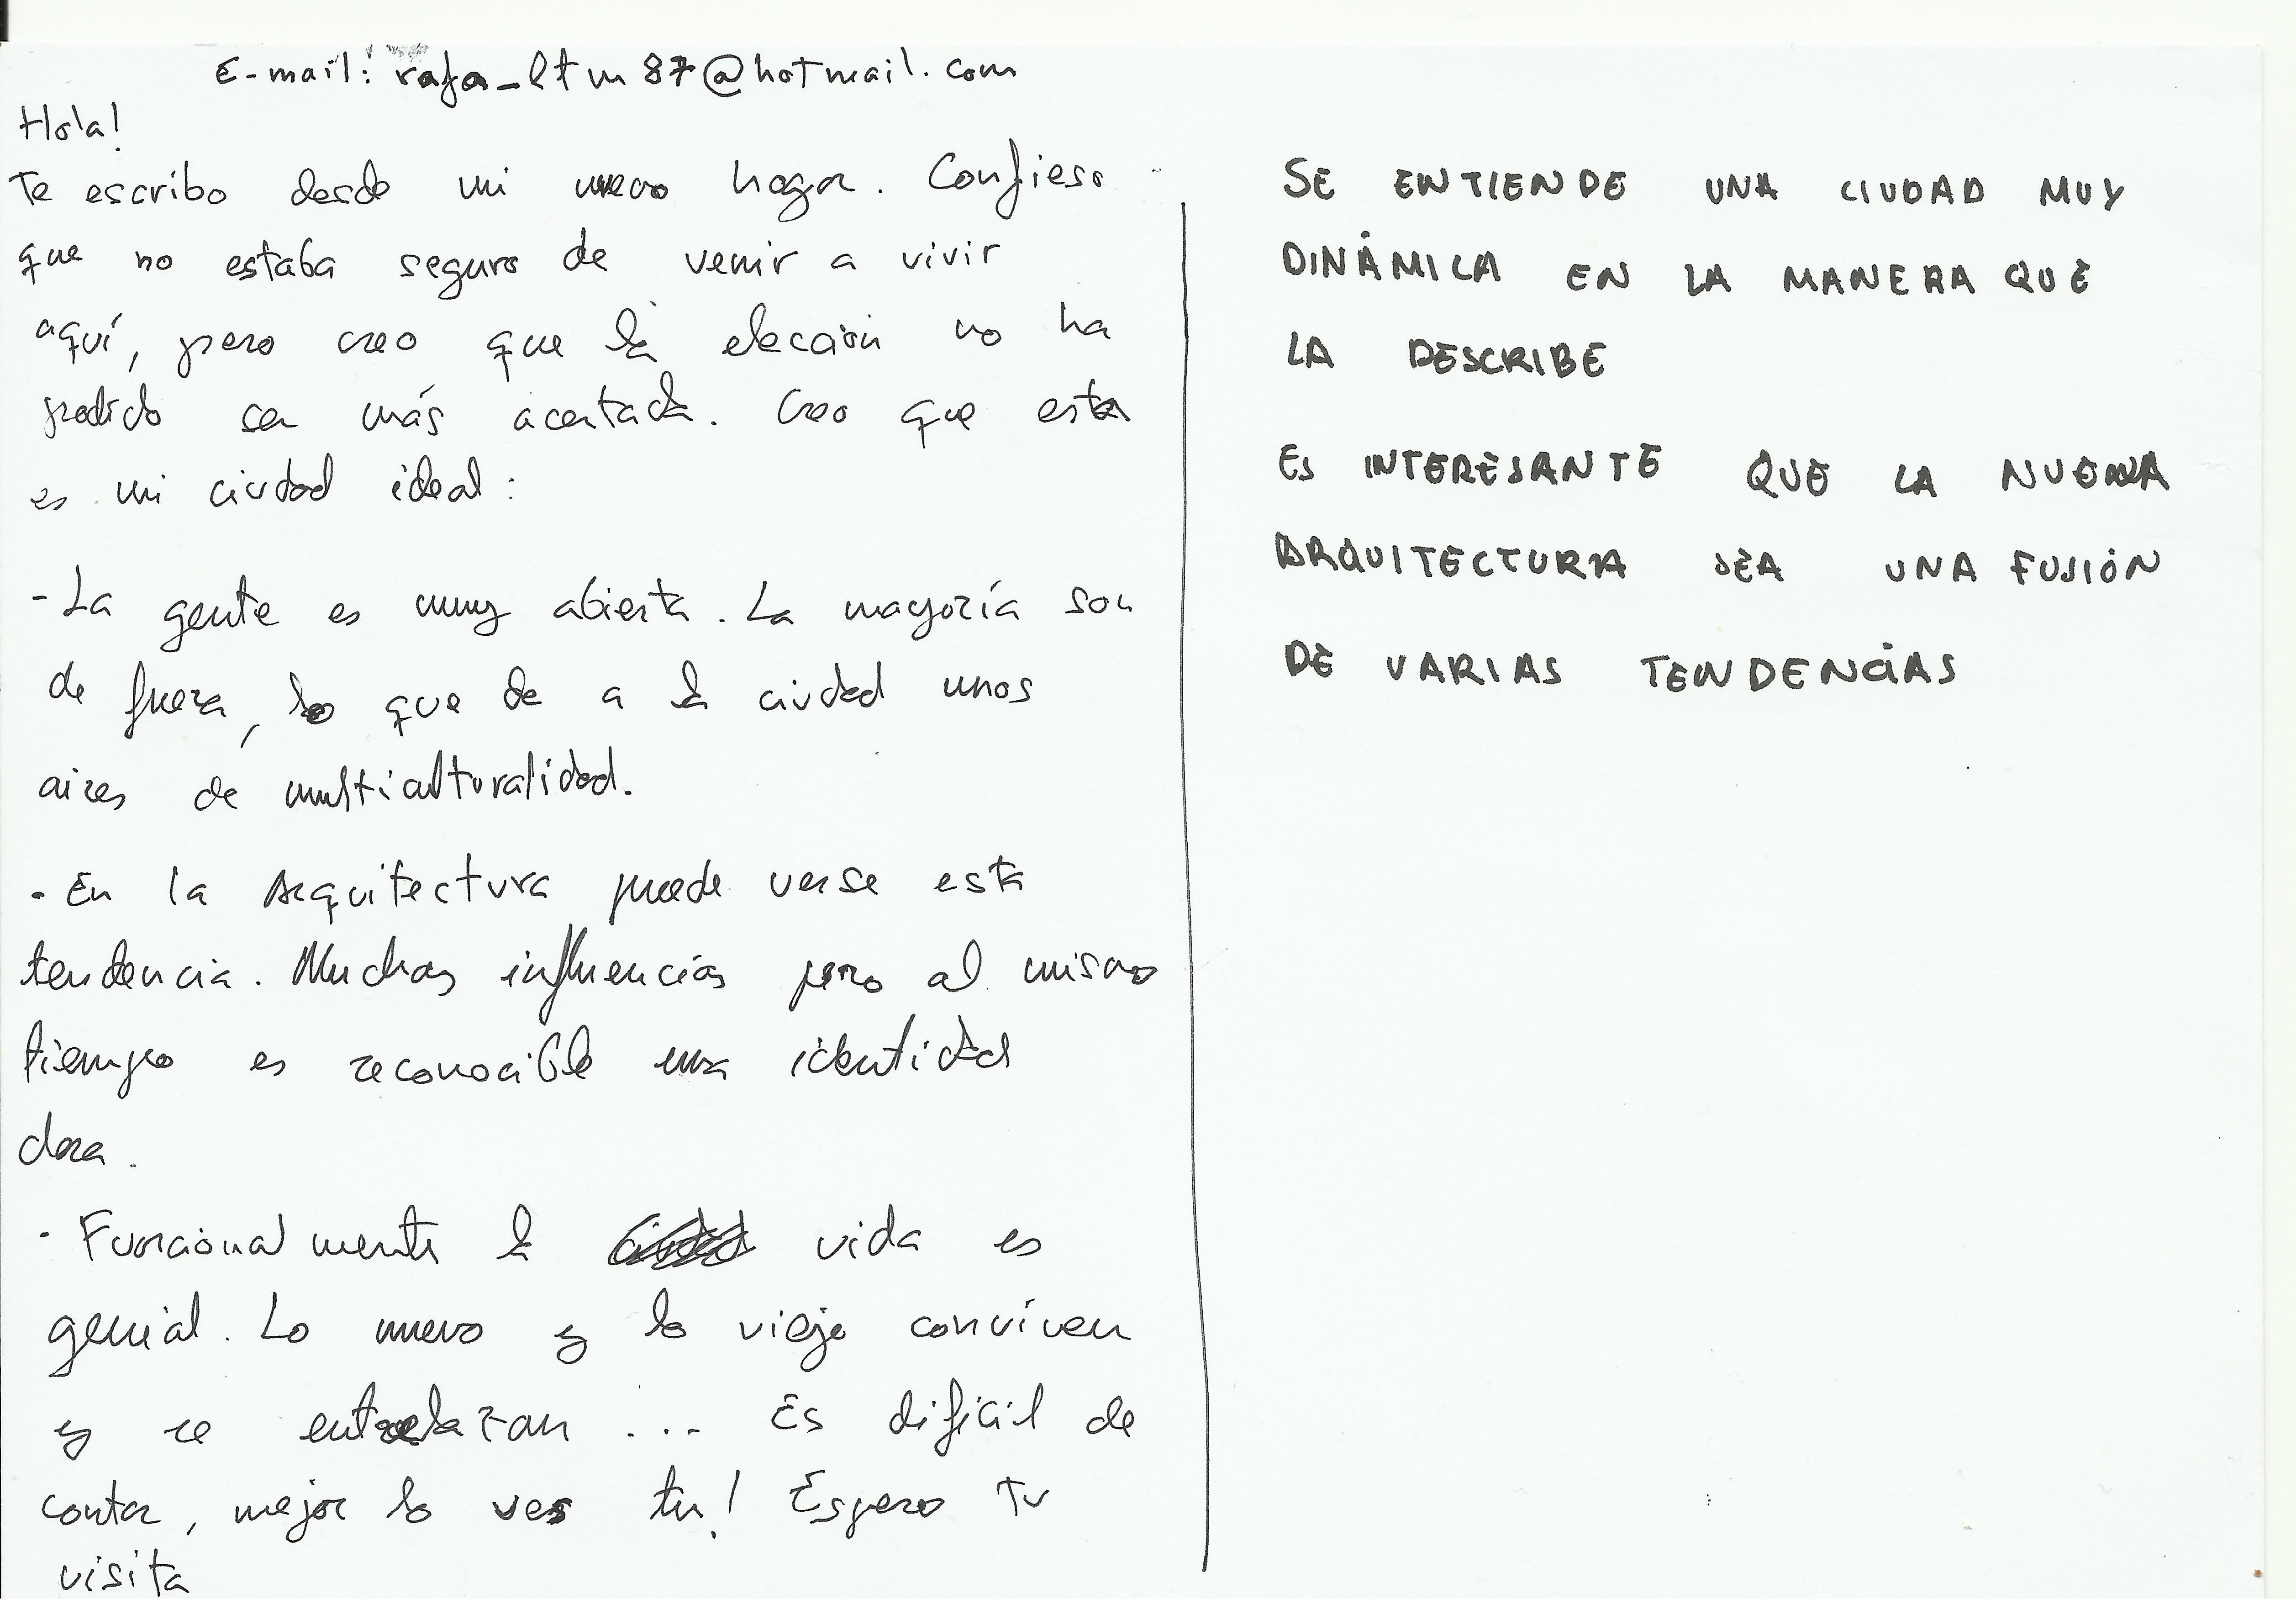 E-mail: rafa_ltm87@hotmail.com
Hola!
Te escribo desde mi nuevo hogar. Confieso
que no estaba seguro de venir a vivir
aquí, pero creo que la elección no ha
podido ser más acertada. Creo que esta
es mi ciudad ideal:
- La gente es muy abierta. La mayoría son
de fuera, lo que da a la ciudad unos
aires de multiculturalidad.
- En la Arquitectura puede verse esta
tendencia. Muchas influencias pero al mismo
tiempo es reconocible una identidad
clara.
- Funcionalmente la vida es
genial. Lo nuevo y lo viejo conviven
y se entrelazan ... Es difícil de
contar, mejor lo ves tu! Espero tu
visita
SE ENTIENDE UNA CIUDAD MUY
DINÁMICA EN LA MANERA QUE
LA DESCRIBE
ES INTERESANTE QUE LA NUEVA
ARQUITECTURA SEA UNA FUSIÓN
DE VARIAS TENDENCIAS